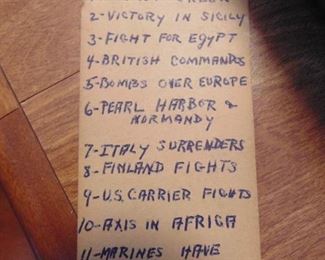 2-VICTORY IN SICILY
3-FIGHT FOR EGYPT
4-BRITISH COMMANDOS
5-BOMBS OVER EUROPE
6-PEARL HARBOR &
NORMANDY
7-ITALY SURRENDERS
8-FINLAND FIGHTS
9-U.S. CARRIER FIGHTS
10-AXIS IN AFRICA
11-MARINES HAVE